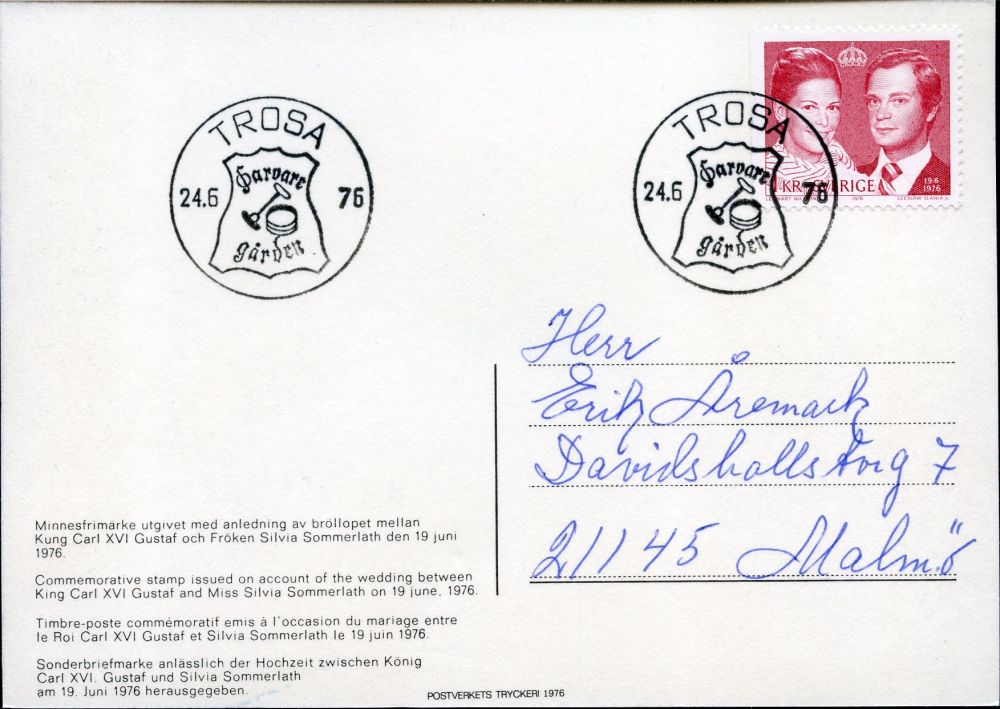 TROSA
Garvare
24.6 76
gården
TROSA
Garvare
24.6 76
gården
1 KR SVERIGE
19·6
1976
1976 CZESLAW SLANIA sc.
Herr
Erik Åremark
Davidshallstorg 7
21145 Malmö
Minnesfrimärke utgivet med anledning av bröllopet mellan
Kung Carl XVI Gustaf och Fröken Silvia Sommerlath den 19 juni
1976.
Commemorative stamp issued on account of the wedding between
King Carl XVI Gustaf and Miss Silvia Sommerlath on 19 june, 1976.
Timbre-poste commémoratif emis à l'occasion du mariage entre
le Roi Carl XVI Gustaf et Silvia Sommerlath le 19 juin 1976.
Sonderbriefmarke anlässlich der Hochzeit zwischen König
Carl XVI. Gustaf und Silvia Sommerlath
am 19. Juni 1976 herausgegeben.
POSTVERKETS TRYCKERI 1976